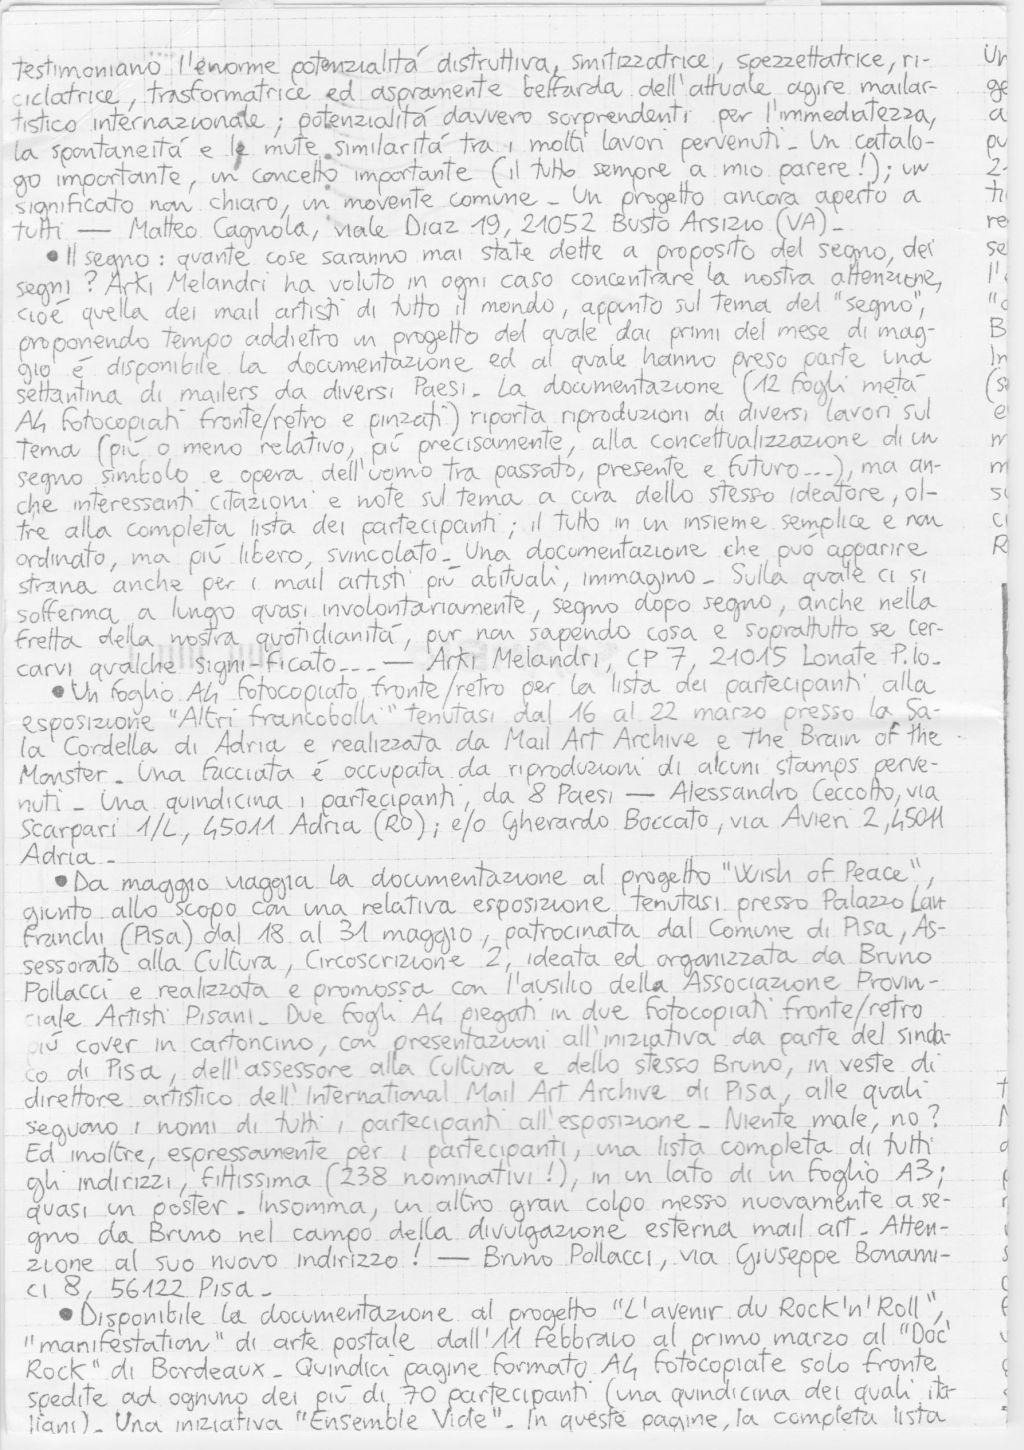 testimoniano l'enorme potenzialitá distruttiva, smitizzatrice, spezzettatrice, ri-
ciclatrice, trasformatrice ed aspramente beffarda dell'attuale agire mailar-
tistico internazionale; potenzialitá davvero sorprendenti per l'immediatezza,
la spontaneitá e le mute similaritá tra i molti lavori pervenuti_ Un catalo-
go importante, un concetto importante (il tutto sempre a mio parere!); un
significato non chiaro, un movente comune_ Un progetto ancora aperto a
tutti — Matteo Cagnola, viale Diaz 19, 21052 Busto Arsizio (VA)_
• Il segno: quante cose saranno mai state dette a proposito del segno, dei
segni? Arki Melandri ha voluto in ogni caso concentrare la nostra attenzione,
cioé quella dei mail artisti di tutto il mondo, appunto sul tema del "segno",
proponendo tempo addietro un progetto del quale dai primi del mese di mag-
gio é disponibile la documentazione ed al quale hanno preso parte una
settantina di mailers da diversi Paesi_ La documentazione (12 fogli metá
A4 fotocopiati fronte/retro e pinzati) riporta riproduzioni di diversi lavori sul
tema (piú o meno relativo, piú precisamente, alla concettualizzazione di un
segno simbolo e opera dell'uomo tra passato, presente e futuro...), ma an-
che interessanti citazioni e note sul tema a cura dello stesso ideatore, ol-
tre alla completa lista dei partecipanti; il tutto in un insieme semplice e non
ordinato, ma piú libero, svincolato_ Una documentazione che puó apparire
strana anche per i mail artisti piú abituali, immagino_ Sulla quale ci si
sofferma a lungo quasi involontariamente, segno dopo segno, anche nella
fretta della nostra quotidianitá, pur non sapendo cosa e soprattutto se cer-
carvi qualche signi-ficato... — Arki Melandri, CP 7, 21015 Lonate P.lo_
• Un foglio A4 fotocopiato fronte/retro per la lista dei partecipanti alla
esposizione "Altri francobolli" tenutasi dal 16 al 22 marzo presso la Sa-
la Cordella di Adria e realizzata da Mail Art Archive e The Brain of the
Monster_ Una facciata é occupata da riproduzioni di alcuni stamps perve-
nuti_ Una quindicina i partecipanti, da 8 Paesi — Alessandro Ceccotto, via
Scarpari 1/L, 45011 Adria (RO); e/o Gherardo Boccato, via Avieri 2, 45011
Adria_
• Da maggio viaggia la documentazione al progetto "Wish of Peace",
giunto allo scopo con una relativa esposizione tenutasi presso Palazzo Lan
franchi (Pisa) dal 18 al 31 maggio, patrocinata dal Comune di Pisa, As-
sessorato alla Cultura, Circoscrizione 2, ideata ed organizzata da Bruno
Pollacci e realizzata e promossa con l'ausilio della Associazione Provin-
ciale Artisti Pisani_ Due fogli A4 piegati in due fotocopiati fronte/retro
piú cover in cartoncino, con presentazioni all'iniziativa da parte del sinda-
co di Pisa, dell'assessore alla Cultura e dello stesso Bruno, in veste di
direttore artistico dell'International Mail Art Archive di Pisa, alle quali
seguono i nomi di tutti i partecipanti all'esposizione_ Niente male, no?
Ed inoltre, espressamente per i partecipanti, una lista completa di tutti
gli indirizzi, fittissima (238 nominativi!), in un lato di un foglio A3;
quasi un poster_ Insomma, un altro gran colpo messo nuovamente a se-
gno da Bruno nel campo della divulgazione esterna mail art_ Atten-
zione al suo nuovo indirizzo! — Bruno Pollacci, via Giuseppe Bonami-
ci 8, 56122 Pisa_
• Disponibile la documentazione al progetto "L'avenir du Rock'n'Roll",
"manifestation" di arte postale dall'11 febbraio al primo marzo al "Doc'
Rock" di Bordeaux_ Quindici pagine formato A4 fotocopiate solo fronte
spedite ad ognuno dei piú di 70 partecipanti (una quindicina dei quali ita-
liani)_ Una iniziativa "Ensemble Vide"_ In queste pagine, la completa lista